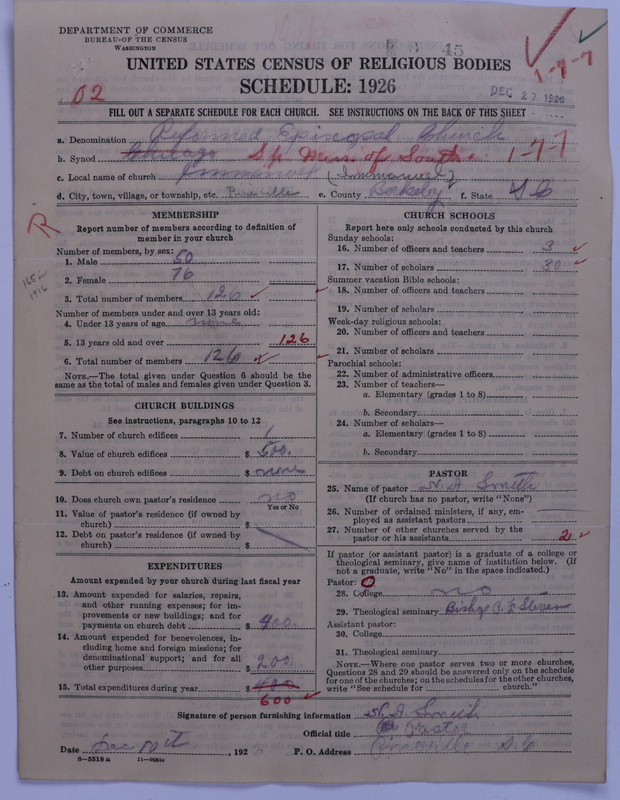 DEPARTMENT OF COMMERCE
BUREAU OF THE CENSUS
WASHINGTON
45
UNITED STATES CENSUS OF RELIGIOUS BODIES
SCHEDULE: 1926
1-7-7
DEC 27 1926
02
FILL OUT A SEPARATE SCHEDULE FOR EACH CHURCH. SEE INSTRUCTIONS ON THE BACK OF THIS SHEET
a. Denomination Reformed Episcopal Church
b. Synod Chicago Sp. Miss. of South 1-7-7
c. Local name of church Immanuel (Immanuel)
d. City, town, village, or township, etc. Pineville e. County Berkeley f. State S C
R
1916
MEMBERSHIP
Report number of members according to definition of member in your church
Number of members, by sex:
1. Male 50
2. Female 76
3. Total number of members 126
Number of members under and over 13 years old:
4. Under 13 years of age none
5. 13 years old and over 126
6. Total number of members 126
NOTE.—The total given under Question 6 should be the same as the total of males and females given under Question 3.
CHURCH BUILDINGS
See instructions, paragraphs 10 to 12
7. Number of church edifices 1
8. Value of church edifices $ 500.
9. Debt on church edifices $ none
10. Does church own pastor's residence no
Yes or No
11. Value of pastor's residence (if owned by church) $
12. Debt on pastor's residence (if owned by church) $
EXPENDITURES
Amount expended by your church during last fiscal year
13. Amount expended for salaries, repairs, and other running expenses; for improvements or new buildings; and for payments on church debt $ 400.
14. Amount expended for benevolences, including home and foreign missions; for denominational support; and for all other purposes $ 200.
15. Total expenditures during year $
600
CHURCH SCHOOLS
Report here only schools conducted by this church
Sunday schools:
16. Number of officers and teachers 3
17. Number of scholars 30
Summer vacation Bible schools:
18. Number of officers and teachers
19. Number of scholars
Week-day religious schools:
20. Number of officers and teachers
21. Number of scholars
Parochial schools:
22. Number of administrative officers
23. Number of teachers—
a. Elementary (grades 1 to 8)
b. Secondary
24. Number of scholars—
a. Elementary (grades 1 to 8)
b. Secondary
PASTOR
25. Name of pastor N. A. Smith
(If church has no pastor, write "None")
26. Number of ordained ministers, if any, employed as assistant pastors
27. Number of other churches served by the pastor or his assistants 2
If pastor (or assistant pastor) is a graduate of a college or theological seminary, give name of institution below. (If not a graduate, write "No" in the space indicated.)
Pastor: O
28. College no
29. Theological seminary Bishop P. F. Stevens
Assistant pastor:
30. College
31. Theological seminary
NOTE.—Where one pastor serves two or more churches, Questions 28 and 29 should be answered only on the schedule for one of the churches; on the schedules for the other churches, write "See schedule for church."
Signature of person furnishing information N. A. Smith
Official title Pastor
Date Dec , 192 P. O. Address Pineville S. C
8—5518 a 11—9684a